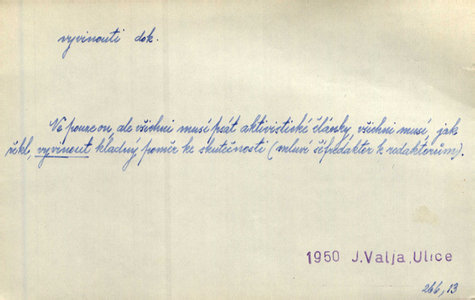 vyvinouti dok.
Ne pouze on, ale všichni musí psát aktivistické články, všichni musí, jak
řekl, vyvinout kladný poměr ke skutečnosti (mluví šéfredaktér k redaktorům).
1950 J.Valja,Ulice
266,13